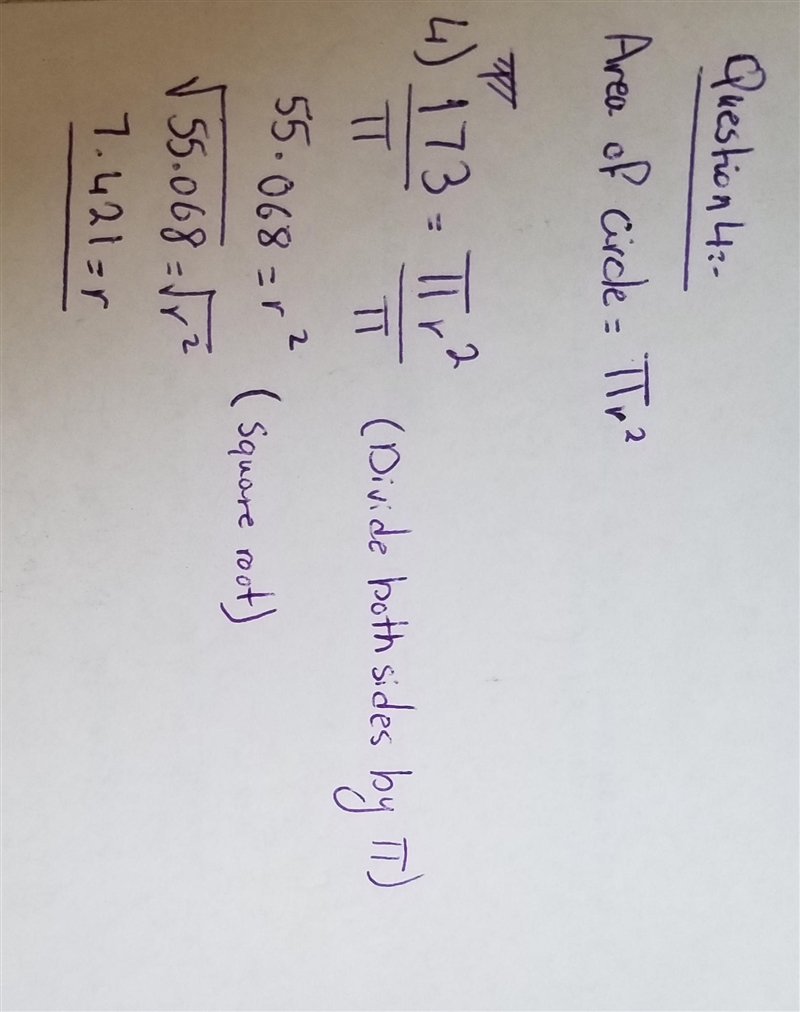 Question 4:-
Area of Circle = πr²
4) 173/π = πr²/π (Divide both sides by π)
55.068 = r² (Square root)
√55.068 = √r²
7.421 = r